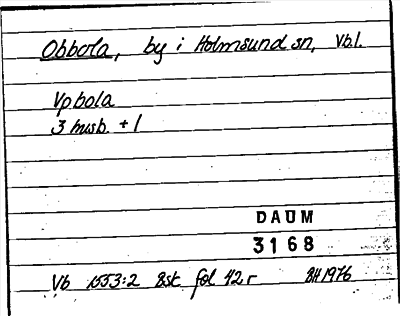 Obbola, by i Holmsund sn, Vbl.
Vpbola
3 husb. + 1
DAUM
3168
Vb 1553:2 Bst fol 42 r BH 1976